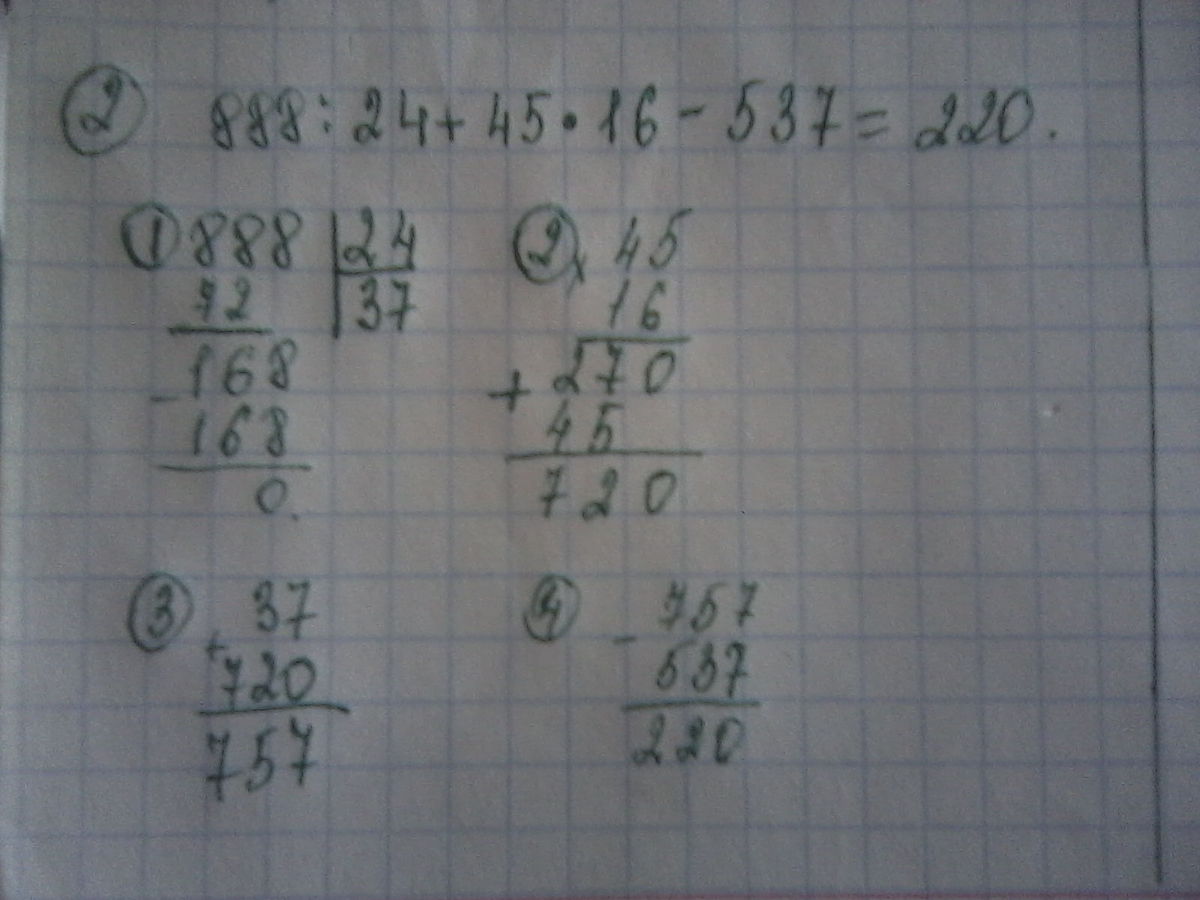 ② 888:24+45•16-537=220.
① 888 | 24
72 | 37
168
- 168
0.
② × 45
16
270
+ 45
720
③ 37
+ 720
757
④ 757
- 537
220